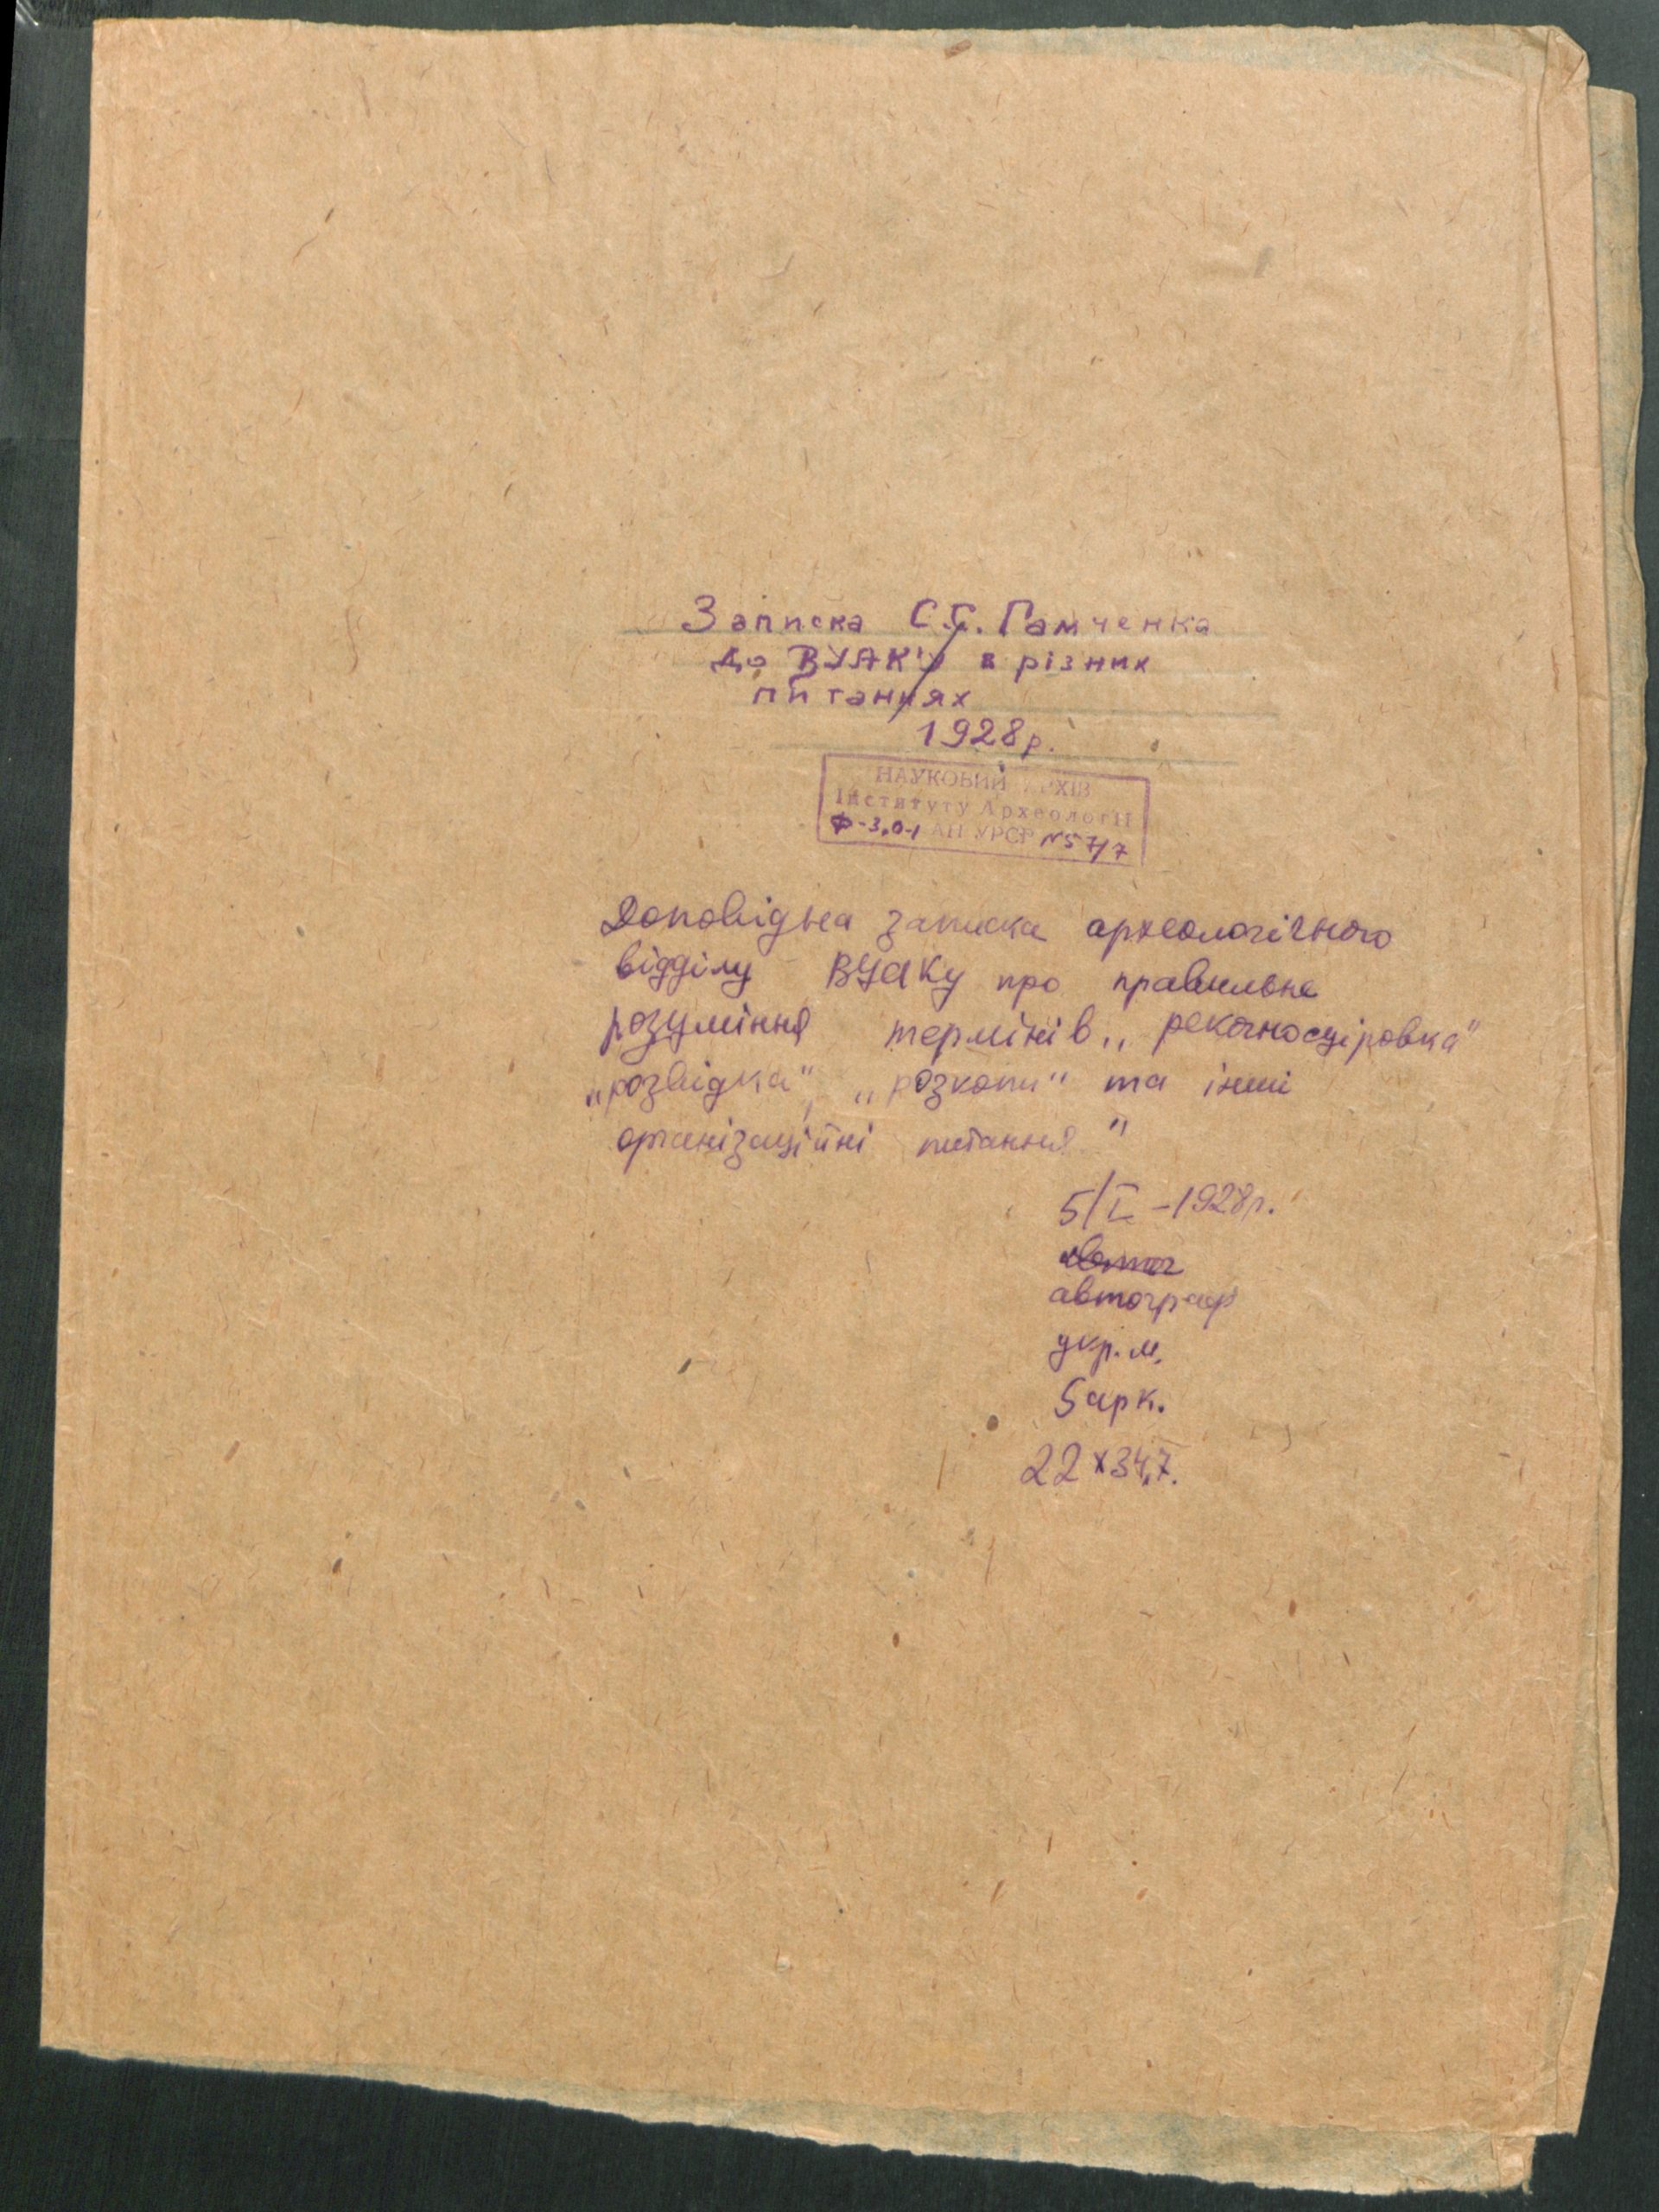 Записка С.С. Гамченка
до ВУАК'у в різних
питаннях
1928р.
НАУКОВИЙ АРХІВ
Інституту Археології
Ф-3,0-1 АН УРСР №57/7
Доповідна записка археологічного
відділу ВУАКу про правильне
розуміння термінів „рекогносціровка"
„розвідка", „розкопи" та інші
організаційні питання"
5/I-1928р.
автограф
укр. м.
5 арк.
22x34,7.